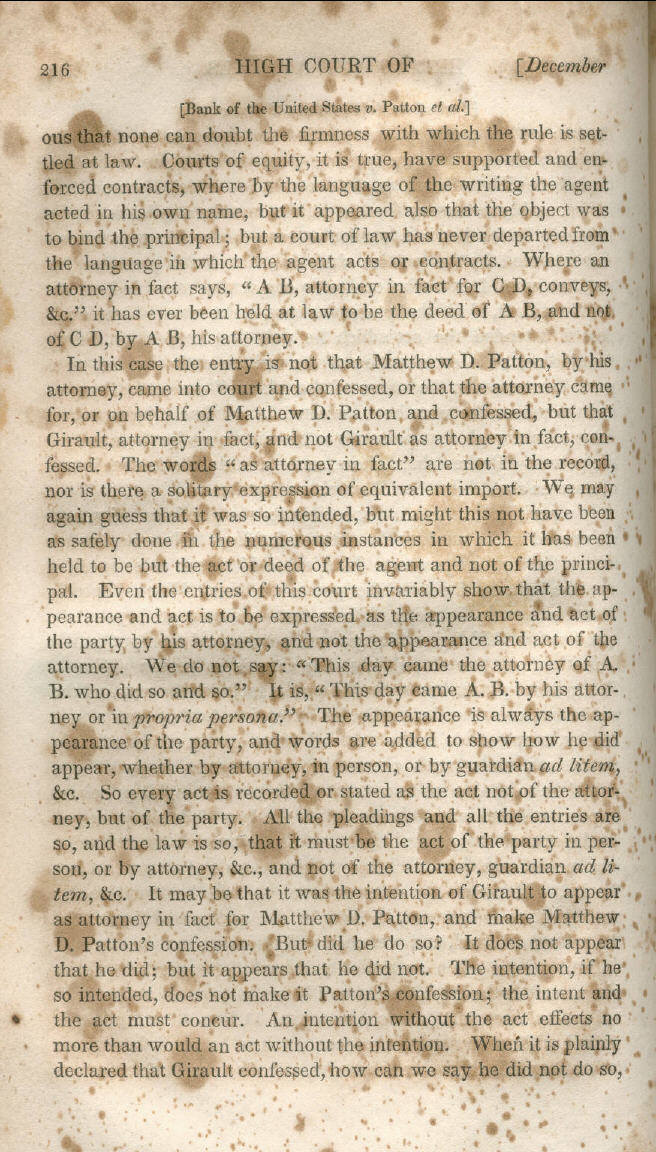 216 HIGH COURT OF [December
[Bank of the United States v. Patton et al.]
ous that none can doubt the firmness with which the rule is set-
tled at law. Courts of equity, it is true, have supported and en-
forced contracts, where by the language of the writing the agent
acted in his own name, but it appeared also that the object was
to bind the principal; but a court of law has never departed from
the language in which the agent acts or contracts. Where an
attorney in fact says, “A B, attorney in fact for C D, conveys,
&c.” it has ever been held at law to be the deed of A B, and not
of C D, by A B, his attorney.
In this case the entry is not that Matthew D. Patton, by his
attorney, came into court and confessed, or that the attorney came
for, or on behalf of Matthew D. Patton and confessed, but that
Girault, attorney in fact, and not Girault as attorney in fact, con-
fessed. The words “as attorney in fact” are not in the record,
nor is there a solitary expression of equivalent import. We may
again guess that it was so intended, but might this not have been
as safely done in the numerous instances in which it has been
held to be but the act or deed of the agent and not of the princi-
pal. Even the entries of this court invariably show that the ap-
pearance and act is to be expressed as the appearance and act of
the party by his attorney, and not the appearance and act of the
attorney. We do not say: “This day came the attorney of A.
B. who did so and so.” It is, “This day came A. B. by his attor-
ney or in propria persona.” The appearance is always the ap-
pearance of the party, and words are added to show how he did
appear, whether by attorney, in person, or by guardian ad litem,
&c. So every act is recorded or stated as the act not of the attor-
ney, but of the party. All the pleadings and all the entries are
so, and the law is so, that it must be the act of the party in per-
son, or by attorney, &c., and not of the attorney, guardian ad li-
tem, &c. It may be that it was the intention of Girault to appear
as attorney in fact for Matthew D. Patton, and make Matthew
D. Patton's confession. But did he do so? It does not appear
that he did; but it appears that he did not. The intention, if he
so intended, does not make it Patton's confession; the intent and
the act must concur. An intention without the act effects no
more than would an act without the intention. When it is plainly
declared that Girault confessed, how can we say he did not do so,